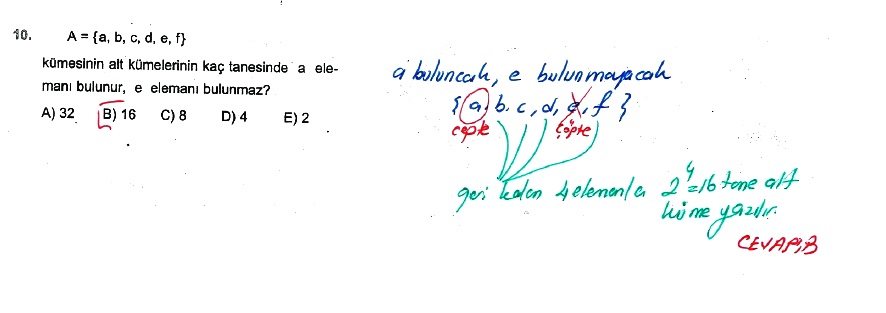 10. A = {a, b, c, d, e, f}
kümesinin alt kümelerinin kaç tanesinde a ele-
manı bulunur, e elemanı bulunmaz?
A) 32 B) 16 C) 8 D) 4 E) 2
a buluncak, e bulunmayacak
{a, b, c, d, e, f}
cepte çöpte
geri kalan 4 elemanla 2⁴=16 tane alt
küme yazılır.
CEVAP;B